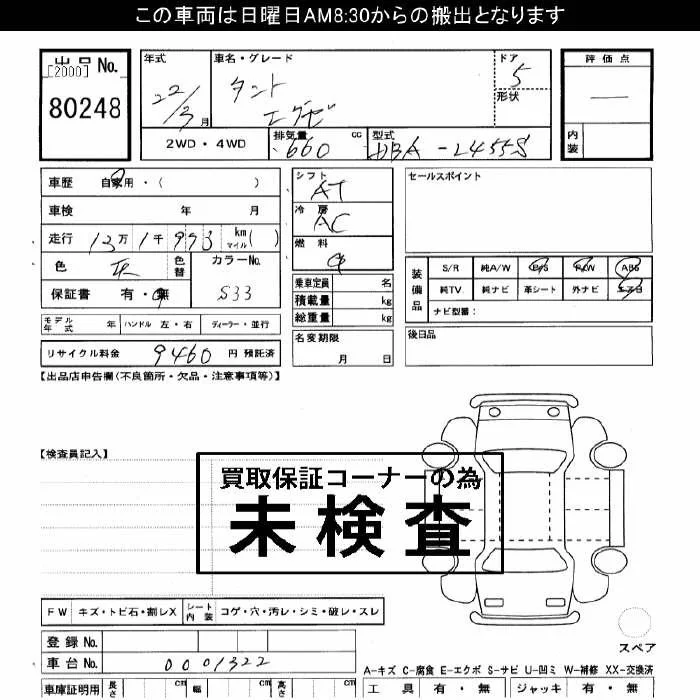 この車両は日曜日AM8:30からの搬出となります
出品No.
[2000]
80248
年式 22/3月
車名・グレード タント エグゼ
ドア 5
形状
2WD・4WD
排気量 660 cc
型式 DBA-L455S
評価点 ―
内装
車歴 自家用・( )
車検 年 月
走行 13万1千993 km マイル( )
色 灰 色替
カラーNo. S33
保証書 有・無
シフト AT
冷房 AC
燃料
乗車定員 名
積載量 kg
総重量 kg
名変期限
月 日
セールスポイント
装備品
S/R 純A/W P/S P/W ABS
純TV 純ナビ 革シート 外ナビ エアB
ナビ型番:
後日品
モデル年式 年 ハンドル 左・右 ディーラー・並行
リサイクル料金 9460 円 預託済
【出品店申告欄(不良箇所・欠品・注意事項等)】
【検査員記入】
買取保証コーナーの為
未検査
FW キズ・トビ石・割レX シート内装 コゲ・穴・汚レ・シミ・破レ・スレ
スペア
登録No.
車台No. 0001322
A-キズ C-腐食 E-エクボ S-サビ U-凹ミ W-補修 XX-交換済
車庫証明用 長さ cm 幅 cm 高さ cm
工具 有・無 ジャッキ 有・無